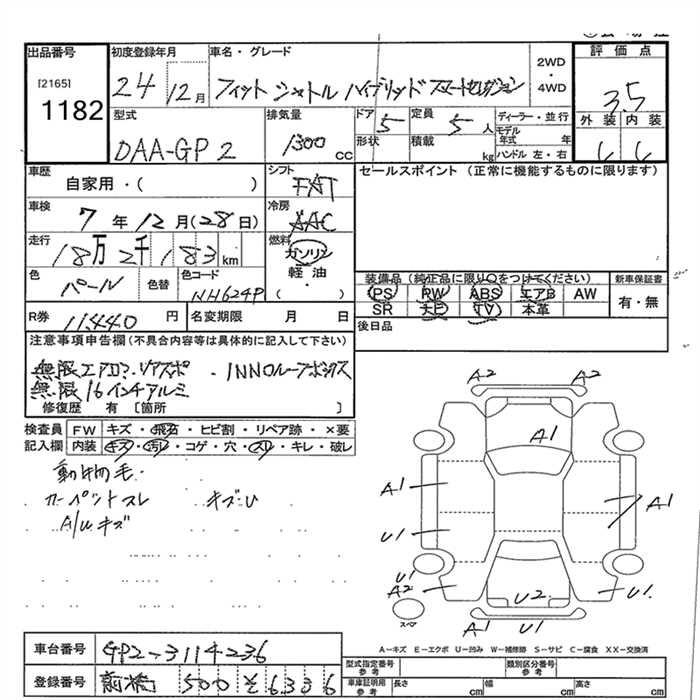 出品番号 初度登録年月 車名・グレード 2WD・4WD 評価点
[2165]
1182 24 12月 フィット シャトル ハイブリッド スマートセレクション 3.5
型式 排気量 ドア 5 定員 5人 ディーラー・並行 外装 内装
DAA-GP2 1300cc 形状 積載 kg モデル年式 年
ハンドル 左・右
車歴 シフト セールスポイント(正常に機能するものに限ります)
自家用・( ) FAT
車検 7年12月(28日) 冷房 AAC
走行 18万2千183km 燃料 ガソリン
軽油
( )
色 パール 色替 色コード NH624P
装備品(純正品に限り○をつけてください) 新車保証書
PS PW ABS エアB AW 有・無
SR ナビ TV 本革
R券 11440円 名変期限 月 日 後日品
注意事項申告欄(不具合内容等は具体的に記入して下さい)
無限エアロ、リアスポ・INNOルーフボックス
無限16インチアルミ
修復歴 有 〔箇所 〕
検査員 FW キズ・飛石・ヒビ割・リペア跡・×要
記入欄 内装 キズ・汚レ・コゲ・穴・スレ・キレ・破レ
動物毛・
カーペットスレ キズU
A/Uキズ
A2 A2
A1
A1 A1
U1
U1
A2 U2 U1
スペア A1 U1
A-キズ E-エクボ U-凹み W-補修跡 S-サビ C-腐食 XX-交換済
車台番号 GP2-3114236
型式指定番号 参考 類別区分番号 参考
登録番号 前橋 500 そ 6336
車庫証明用 参考 長さ cm 幅 cm 高さ cm